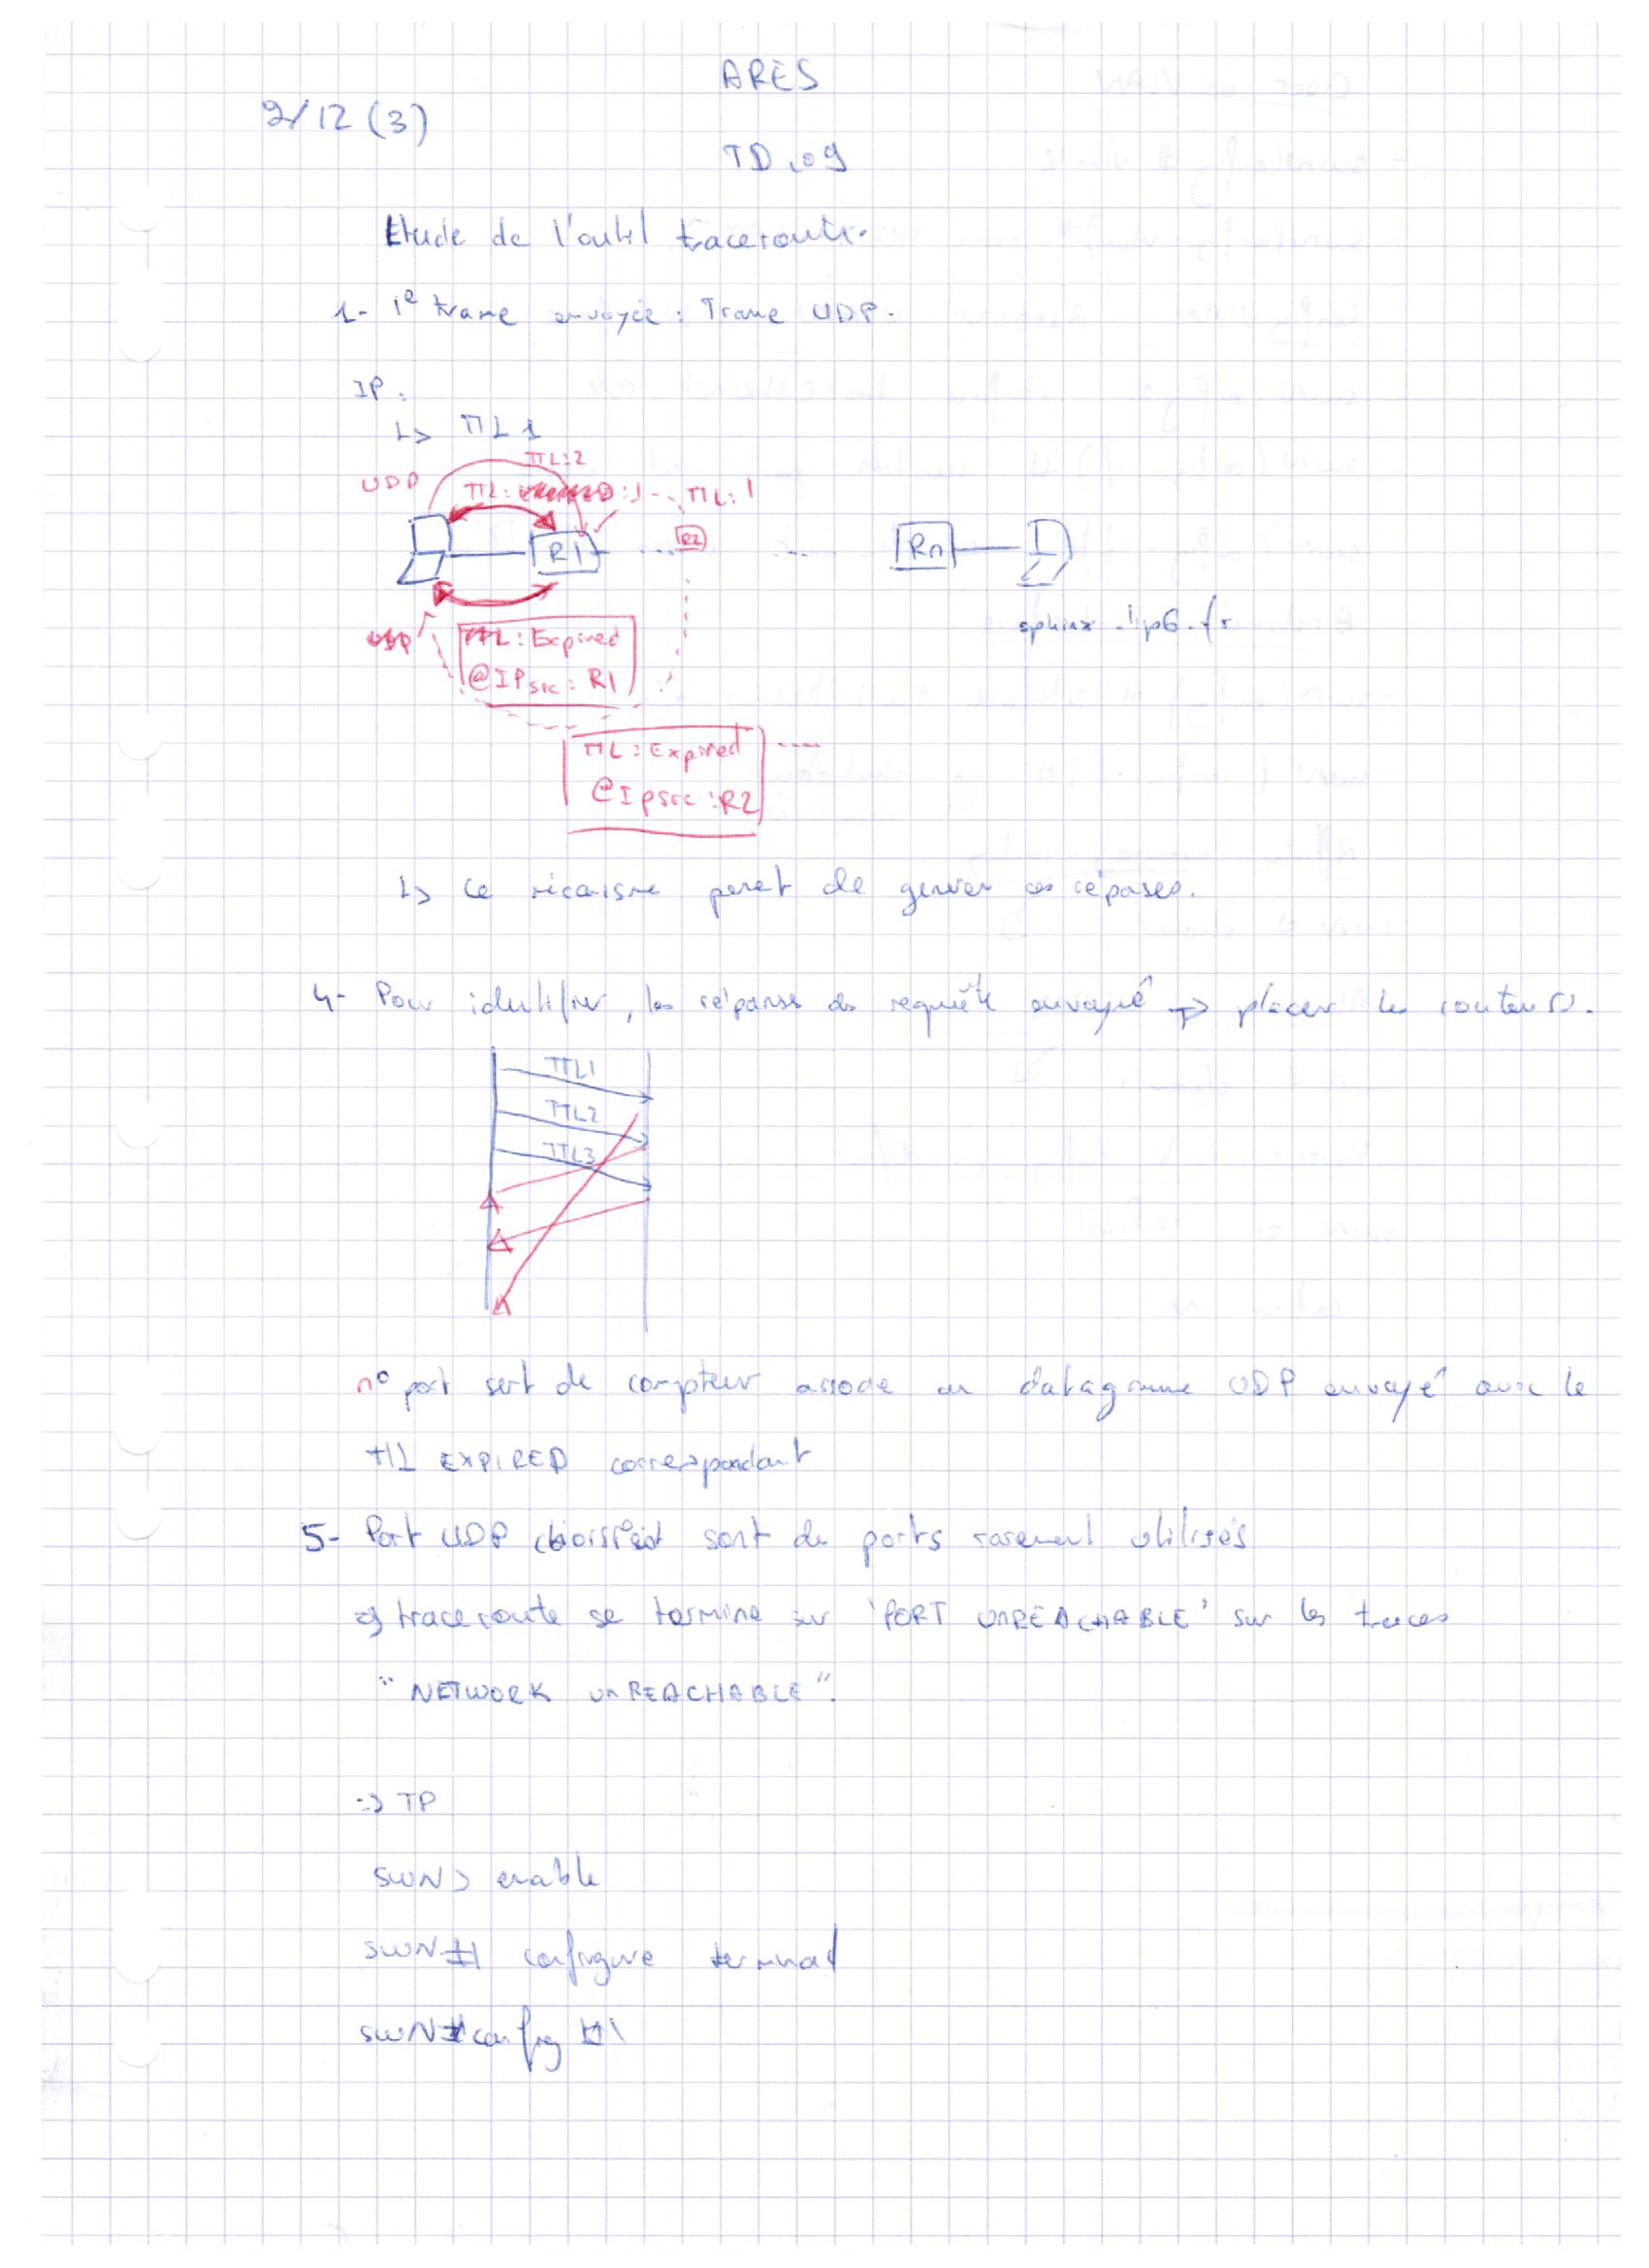 ARES
2/12 (3)
TD 09
Etude de l'outil traceroute.
1- 1e trame envoyée : Trame UDP.
IP :
↳ TTL 1
TTL:2
UDP
TTL: :1 TTL:1
R1 ... R2 ... Rn
sphinx.lip6.fr
UDP
TTL : Expired
@IPsrc : R1
TTL : Expired ----
@Ipsrc : R2
↳ Ce mécanisme permet de générer ces réponses.
4- Pour identifier, les réponses des requête envoyé => placer les routeurs.
TTL1
TTL2
TTL3
n° port sert de compteur associe un datagramme UDP envoyé avec le
TTL EXPIRED correspondant
5- Port UDP sont de ports rarement utilisés
=> traceroute se termine sur 'PORT UNREACHABLE' sur les traces
"NETWORK UNREACHABLE".
=> TP
SWN> enable
SWN# configure terminal
SWN#config #